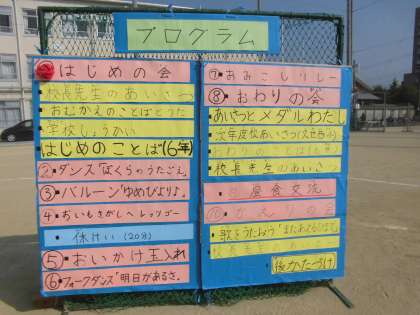 プログラム
①はじめの会
校長先生のあいさつ
おむかえのことばとうた
学校しょうかい
はじめのことば(6年)
②ダンス「ぼくらのうたごえ」
③・バルーン「ゆめびより」
4・おいもさがしへレッツゴー
休けい(20分)
⑤・おいかけ玉入れ
⑥・フォークダンス「明日があるさ」
⑦・おみこしリレー
⑧・おわりの会
あいさつとメダルわたし
おわりのことば(6年)
校長先生のあいさつ
昼食交流
⑩・かえりの会
後かたづけ